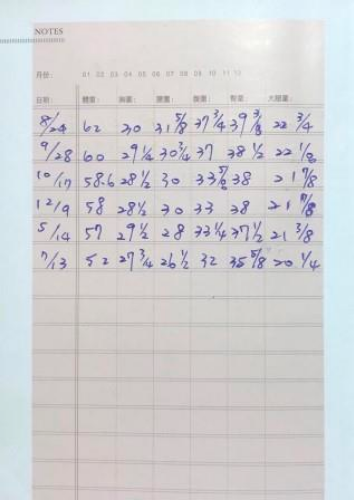 NOTES
月份： 01 02 03 04 05 06 07 08 09 10 11 12
日期： 體重： 胸圍： 腰圍： 臀圍： 大腿圍：
8/24 62 30 31 5/8 37 3/4 39 3/8 22 3/4
9/28 60 29 1/4 30 3/4 37 38 1/2 22 1/8
10/17 58.6 28 1/2 30 33 5/8 38 21 7/8
12/9 58 28 1/2 30 33 38 21 7/8
5/14 57 29 1/2 28 33 1/4 37 1/2 21 3/8
7/13 52 27 3/4 26 1/2 32 35 5/8 20 1/4